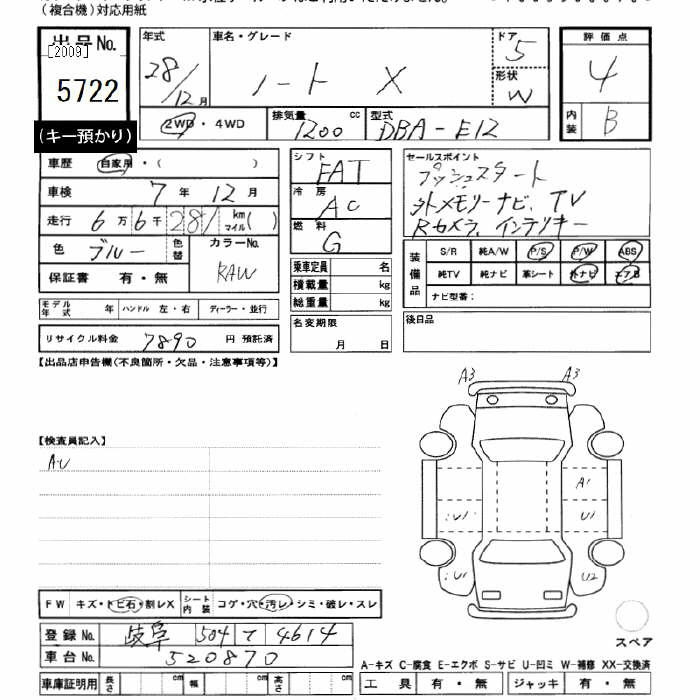 (複合機)対応用紙
出品No.
[2009]
5722
(キー預かり)
年式 車名・グレード ドア 評価点
28/12月 ノート X 5 4
形状 W
2WD・4WD 排気量 1200 cc 型式 DBA-E12
内装 B
車歴 自家用・( )
車検 7年 12月
走行 6万6千281 km マイル( )
色 ブルー 色替 カラーNo. RAW
保証書 有・無
モデル年式 年 ハンドル 左・右 ディーラー・並行
リサイクル料金 7890 円 預託済
シフト FAT
冷房 AC
燃料 G
乗車定員 名
積載量 kg
総重量 kg
名変期限 月 日
セールスポイント
プッシュスタート
外メモリーナビ、TV
Rカメラ、インテリキー
装備品 S/R 純A/W P/S P/W ABS
純TV 純ナビ 革シート 外ナビ エアB
ナビ型番:
後日品
【出品店申告欄(不良箇所・欠品・注意事項等)】
【検査員記入】
AU
A3 A3
A1
U1 U1
U1 U2
スペア
FW キズ・トビ石・割レX シート内装 コゲ・穴・汚レ・シミ・破レ・スレ
登録No. 岐阜 504 て 4614
車台No. 520870
車庫証明用 長さ cm 幅 cm 高さ cm
A-キズ C-腐食 E-エクボ S-サビ U-凹ミ W-補修 XX-交換済
工具 有・無 ジャッキ 有・無